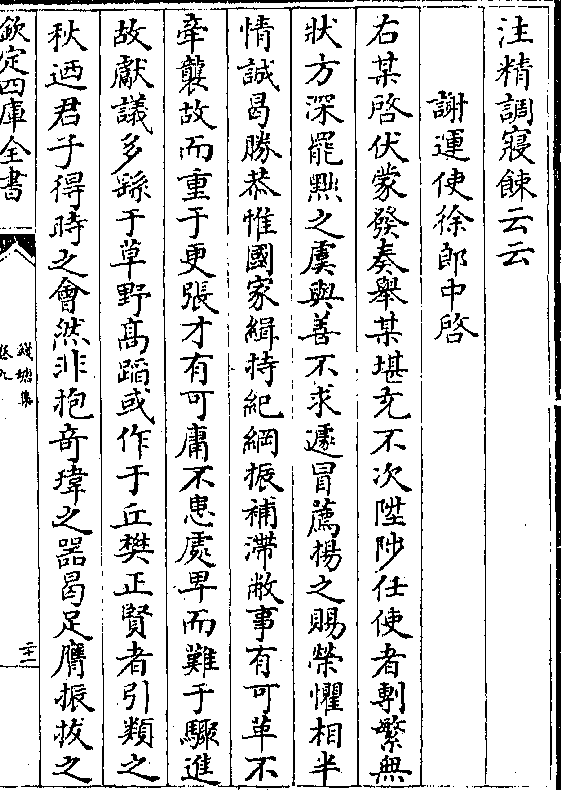 注精調寢餗云云
謝運使徐郎中啓
右某啓伏蒙發奏舉某堪充不次陞陟任使者剸繁無
狀方深罷黜之虞與善不求遽冒薦揚之賜榮懼相半
情誠曷勝恭惟國家緝持紀綱振補滯敝事有可革不
牽襲故而重于更張才有可庸不患處卑而難于驟進
故獻議多繇于草野髙蹈或作于丘樊正賢者引類之
秋迺君子得時之會然非抱竒瑋之器曷足膺振拔之
欽定四庫全書
錢塘集
卷九
二十二